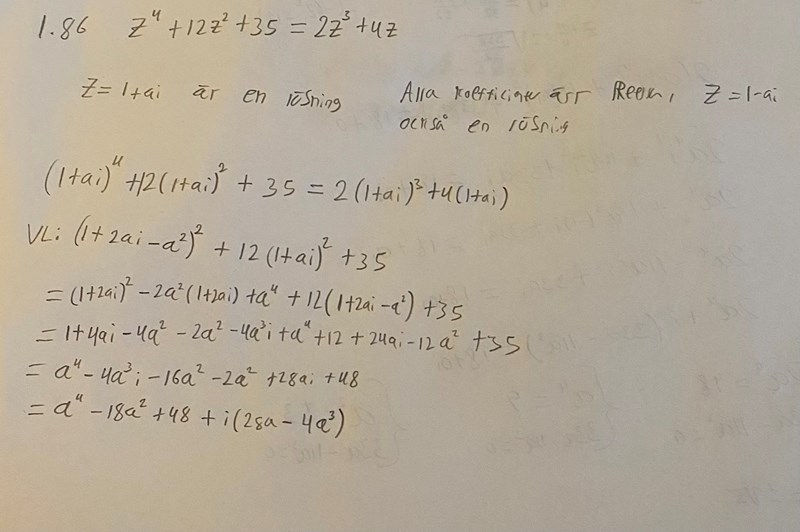 1.86 z⁴ + 12z² + 35 = 2z³ + 4z
z = 1+ai är en lösning Alla koefficienter är Reella, z = 1-ai
också en lösning
(1+ai)⁴ + 12(1+ai)² + 35 = 2(1+ai)³ + 4(1+ai)
VL: (1+2ai-a²)² + 12(1+ai)² + 35
= (1+2ai)² - 2a²(1+2ai) + a⁴ + 12(1+2ai-a²) + 35
= 1+4ai-4a² - 2a² - 4a³i + a⁴ + 12 + 24ai - 12a² + 35
= a⁴ - 4a³i - 16a² - 2a² + 28ai + 48
= a⁴ - 18a² + 48 + i(28a - 4a³)